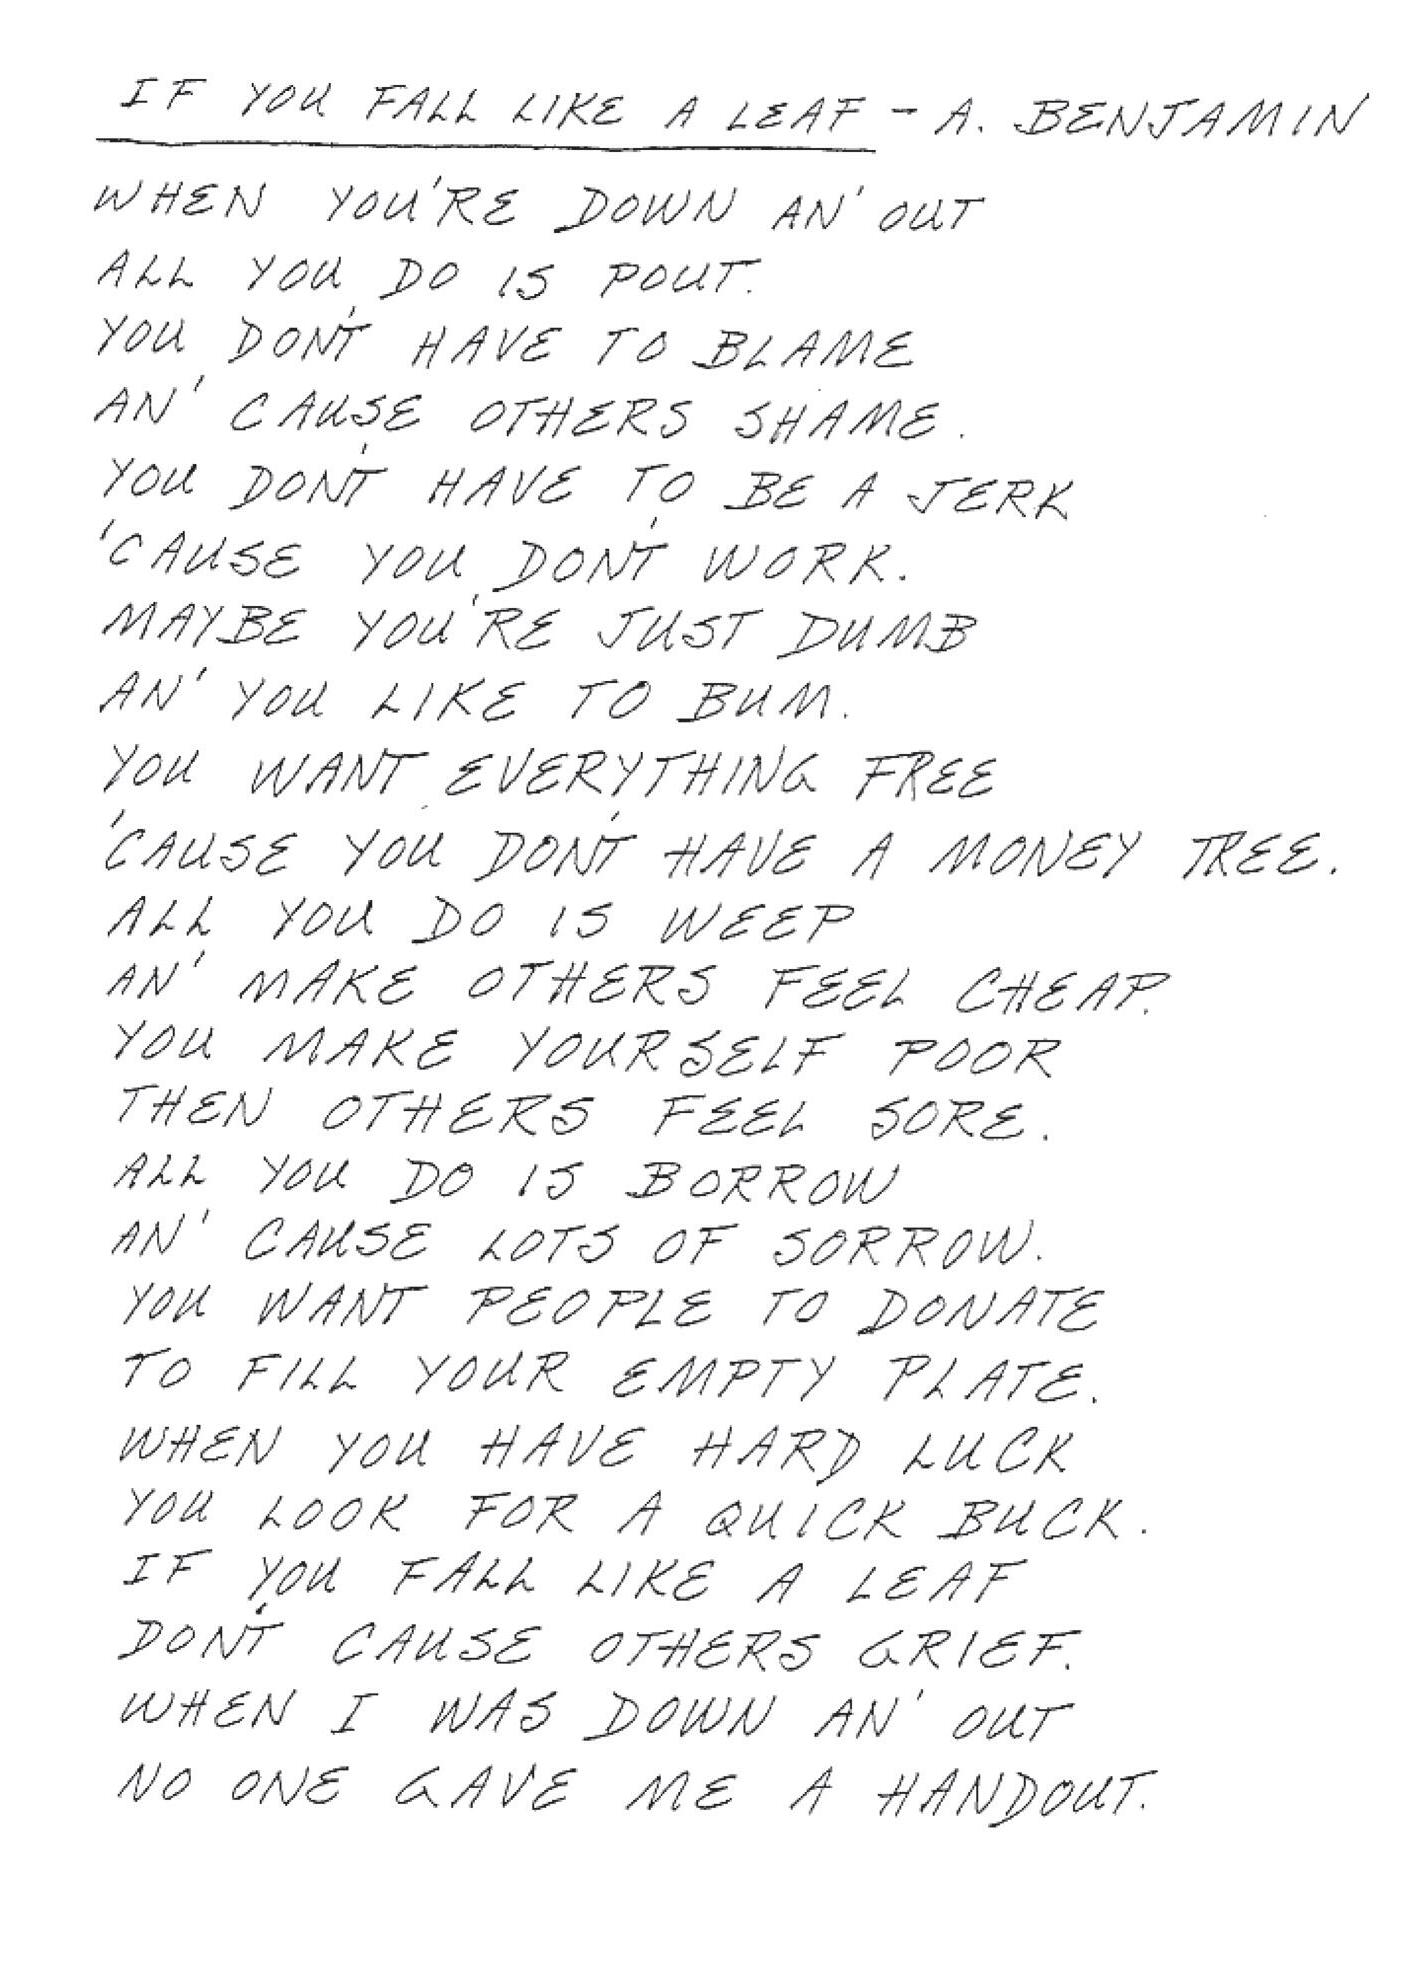 IF YOU FALL LIKE A LEAF - A. BENJAMIN
WHEN YOU'RE DOWN AN' OUT
ALL YOU DO IS POUT.
YOU DON'T HAVE TO BLAME
AN' CAUSE OTHERS SHAME.
YOU DON'T HAVE TO BE A JERK
'CAUSE YOU DON'T WORK.
MAYBE YOU'RE JUST DUMB
AN' YOU LIKE TO BUM.
YOU WANT EVERYTHING FREE
'CAUSE YOU DON'T HAVE A MONEY TREE.
ALL YOU DO IS WEEP
AN' MAKE OTHERS FEEL CHEAP.
YOU MAKE YOURSELF POOR
THEN OTHERS FEEL SORE.
ALL YOU DO IS BORROW
AN' CAUSE LOTS OF SORROW.
YOU WANT PEOPLE TO DONATE
TO FILL YOUR EMPTY PLATE.
WHEN YOU HAVE HARD LUCK
YOU LOOK FOR A QUICK BUCK.
IF YOU FALL LIKE A LEAF
DON'T CAUSE OTHERS GRIEF.
WHEN I WAS DOWN AN' OUT
NO ONE GAVE ME A HANDOUT.